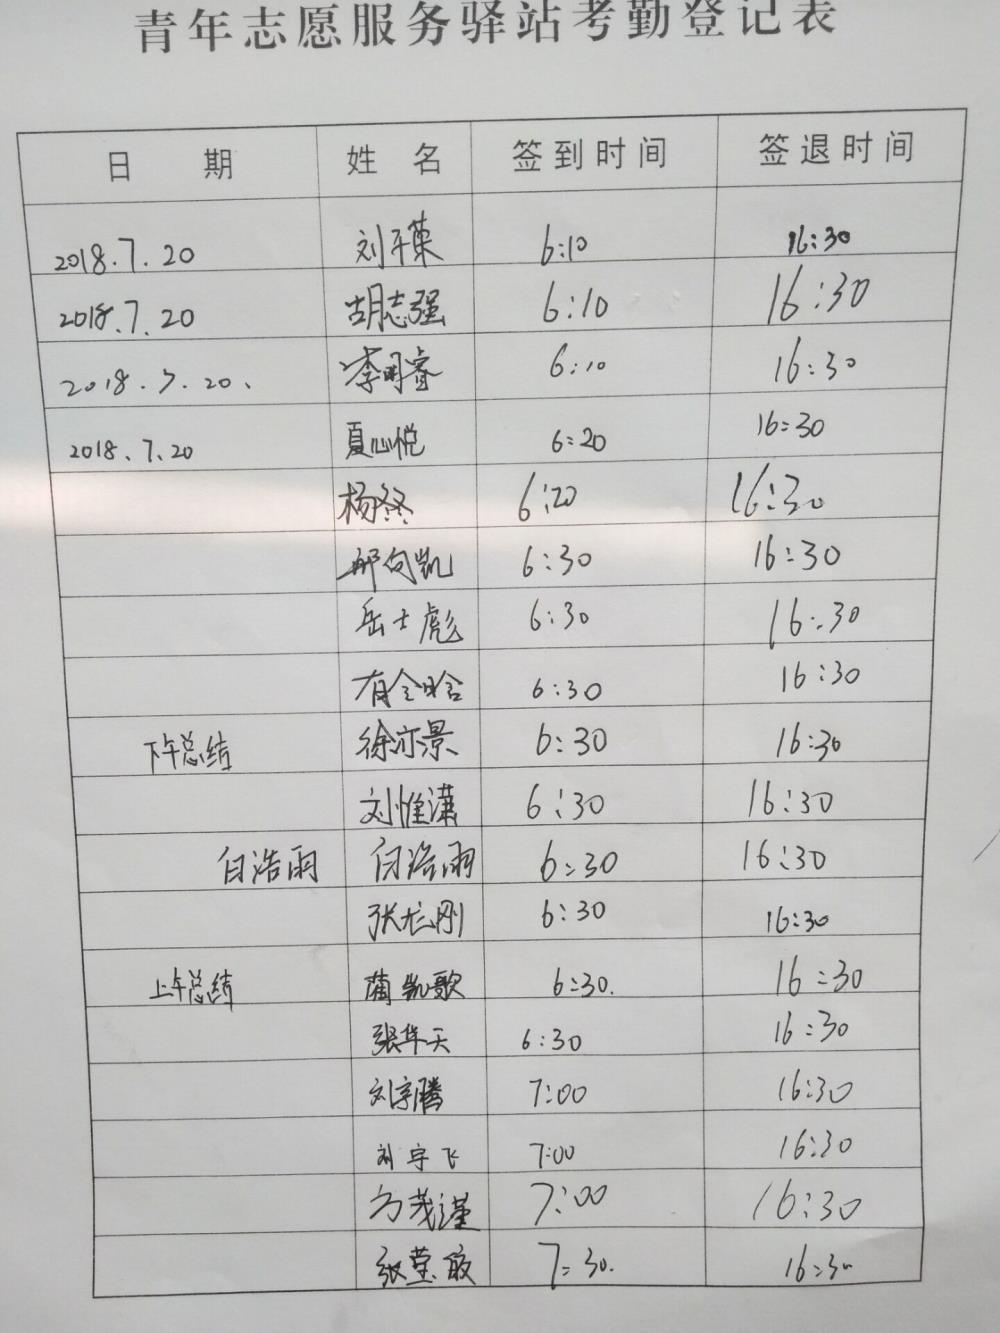 青年志愿服务驿站考勤登记表
日 期 姓 名 签到时间 签退时间
2018.7.20 刘千荣 6:10 16:30
2018.7.20 胡志强 6:10 16:30
2018.7.20. 李明睿 6:10 16:30
2018.7.20 夏心悦 6:20 16:30
杨终 6:20 16:30
向凯 6:30 16:30
岳士彪 6:30 16:30
6:30 16:30
下午总结 徐亦景 6:30 16:30
刘惟潇 6:30 16:30
白浩雨 白浩雨 6:30 16:30
张龙刚 6:30 16:30
上午总结 蔺凯歌 6:30. 16:30
张华天 6:30 16:30
刘宇腾 7:00 16:30
刘宇飞 7:00 16:30
方茂谨 7:00 16:30
张莹 7:30. 16:30